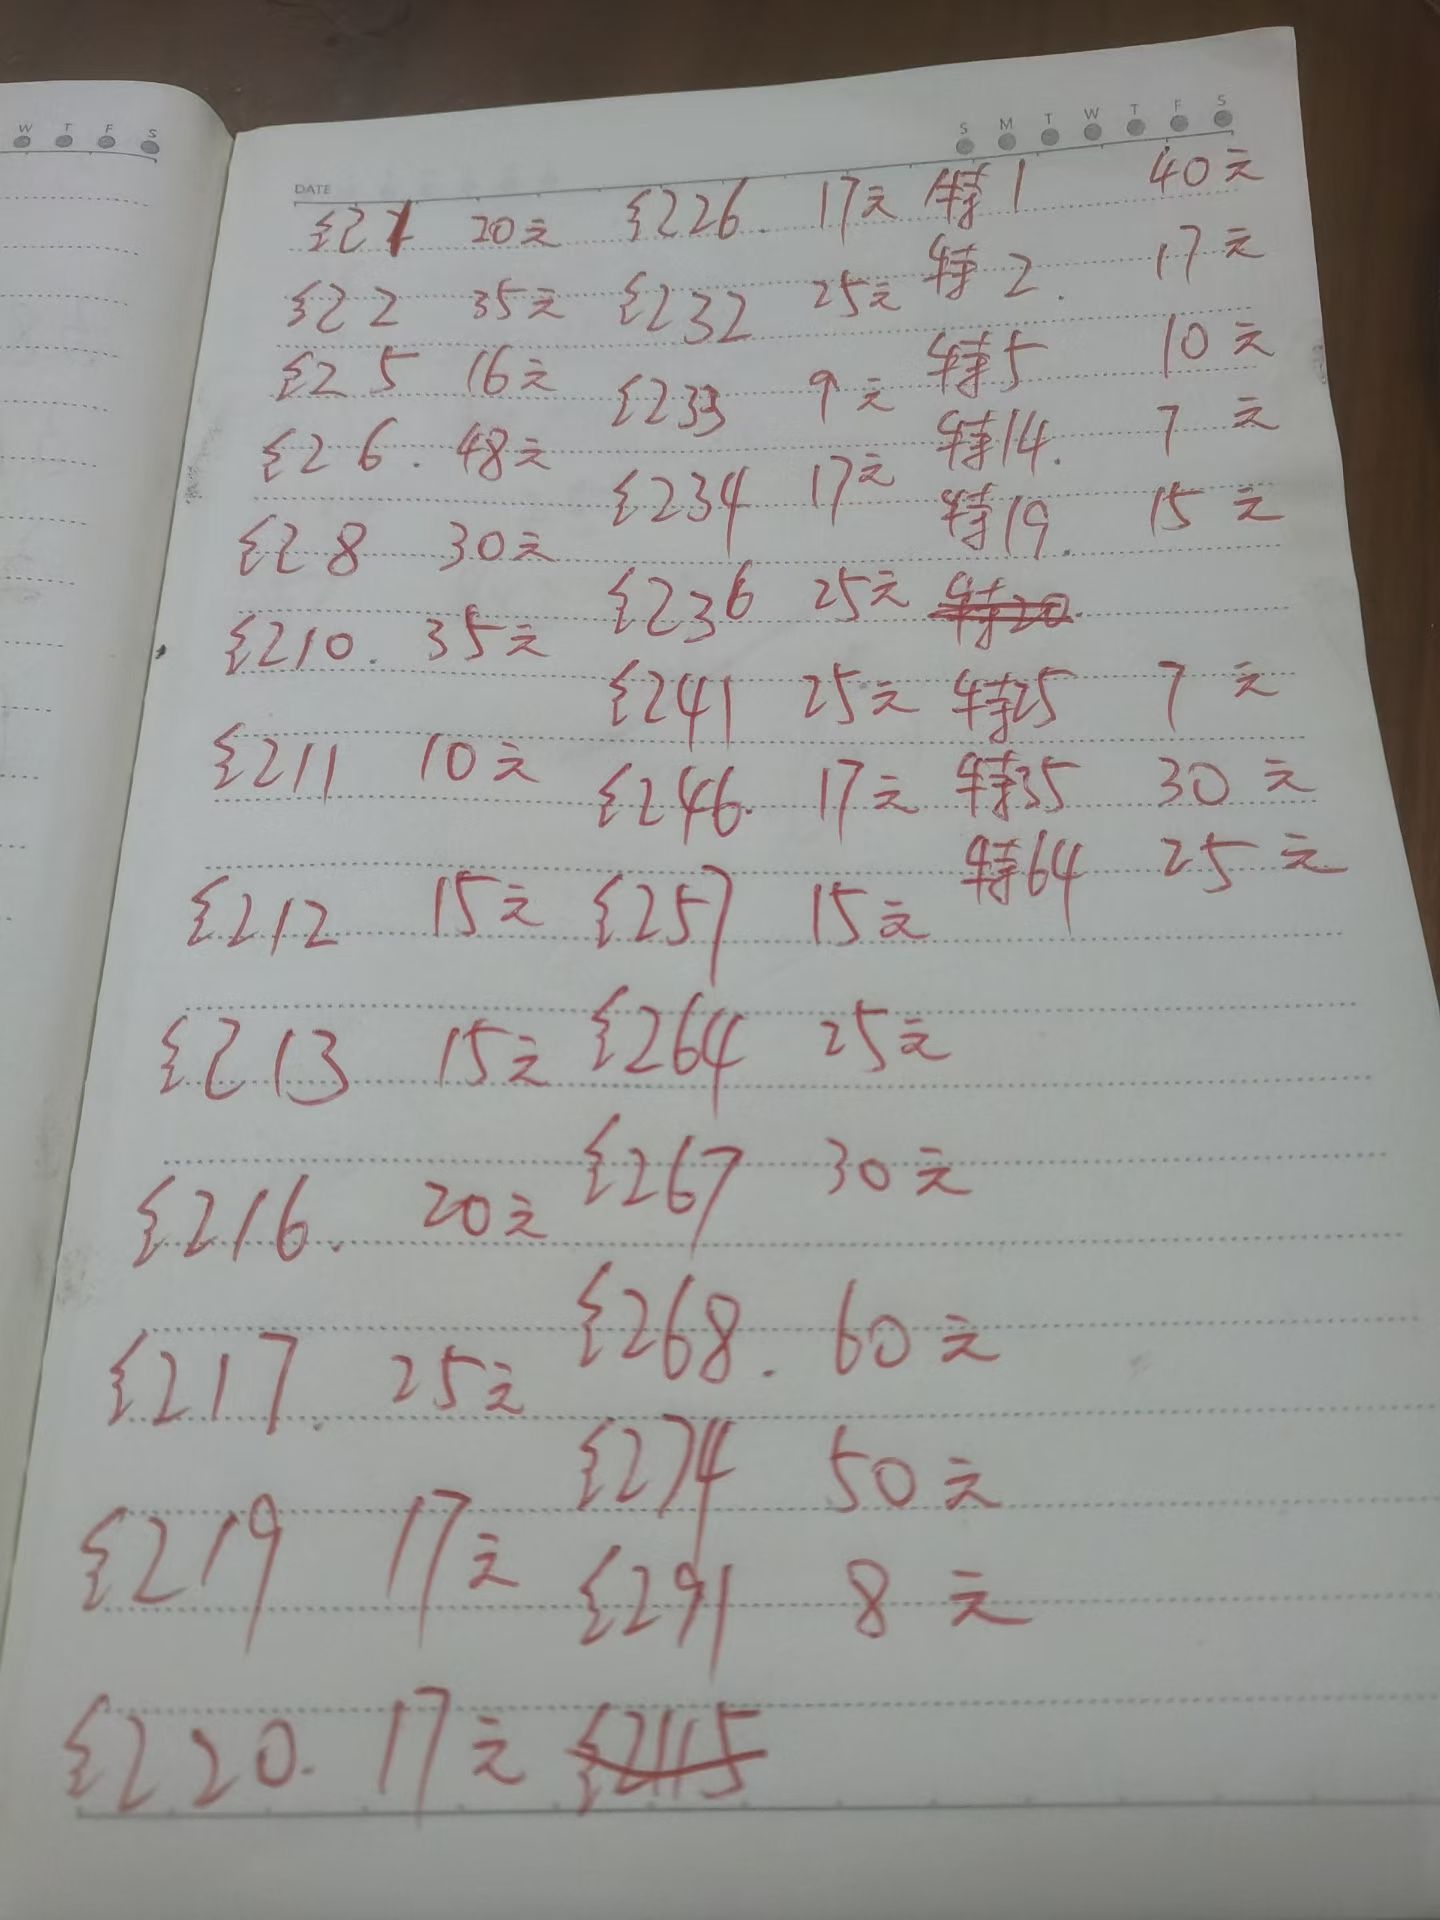 W T F S
S M T W T F S
DATE
纪1 20元 纪26. 17元 特1 40元
纪2 35元 纪32 25元 特2. 17元
纪5 16元 纪33 9元 特5 10元
纪6. 48元 纪34 17元 特14. 7元
纪8 30元 纪36 25元 特19. 15元
纪10. 35元 纪41 25元 特20.
纪11 10元 纪46. 17元 特25 7元
纪12 15元 纪57 15元 特35 30元
纪13 15元 纪64 25元 特64 25元
纪16. 20元 纪67 30元
纪17. 25元 纪68. 60元
纪19 17元 纪74 50元
纪20. 17元 纪91 8元
纪115